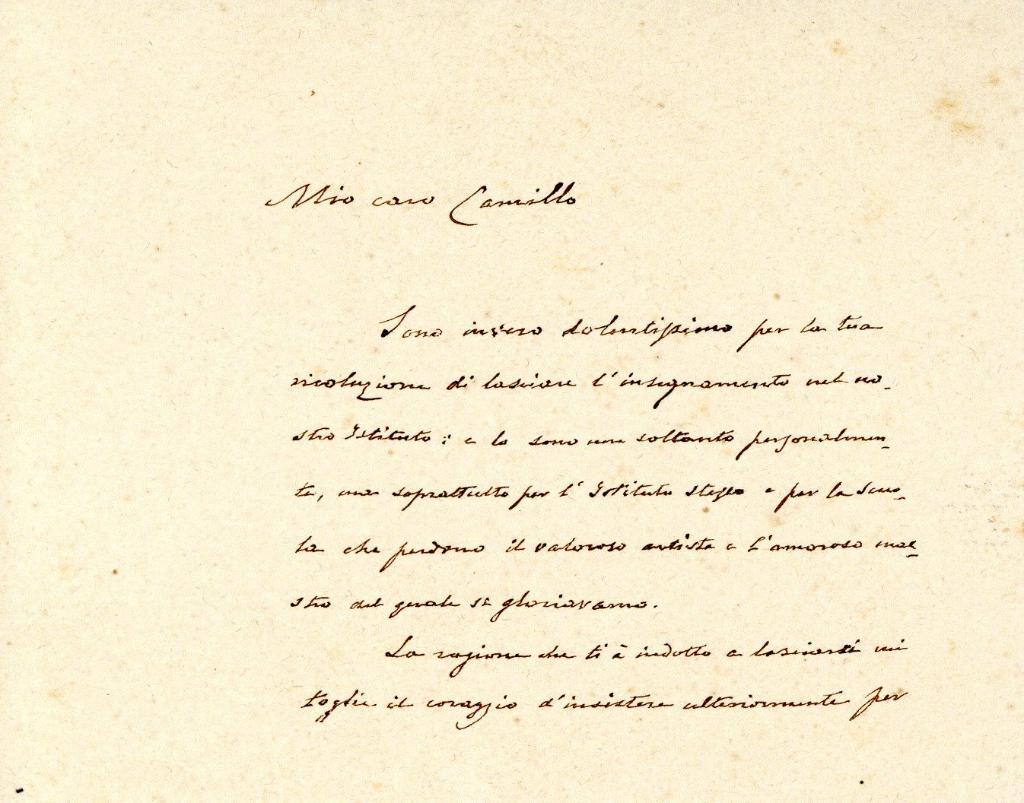 Mio caro Camillo
Sono invero dolentissimo per la tua
risoluzione di lasciare l'insegnamento nel no-
stro Istituto: e lo sono non soltanto personalmen-
te, ma soprattutto per l'Istituto stesso e per la scuo-
la che perdono il valoroso artista e l'amoroso mae-
stro del quale si gloriavano.
La ragione che ti à indotto a lasciarci mi
toglie il coraggio d'insistere ulteriormente per